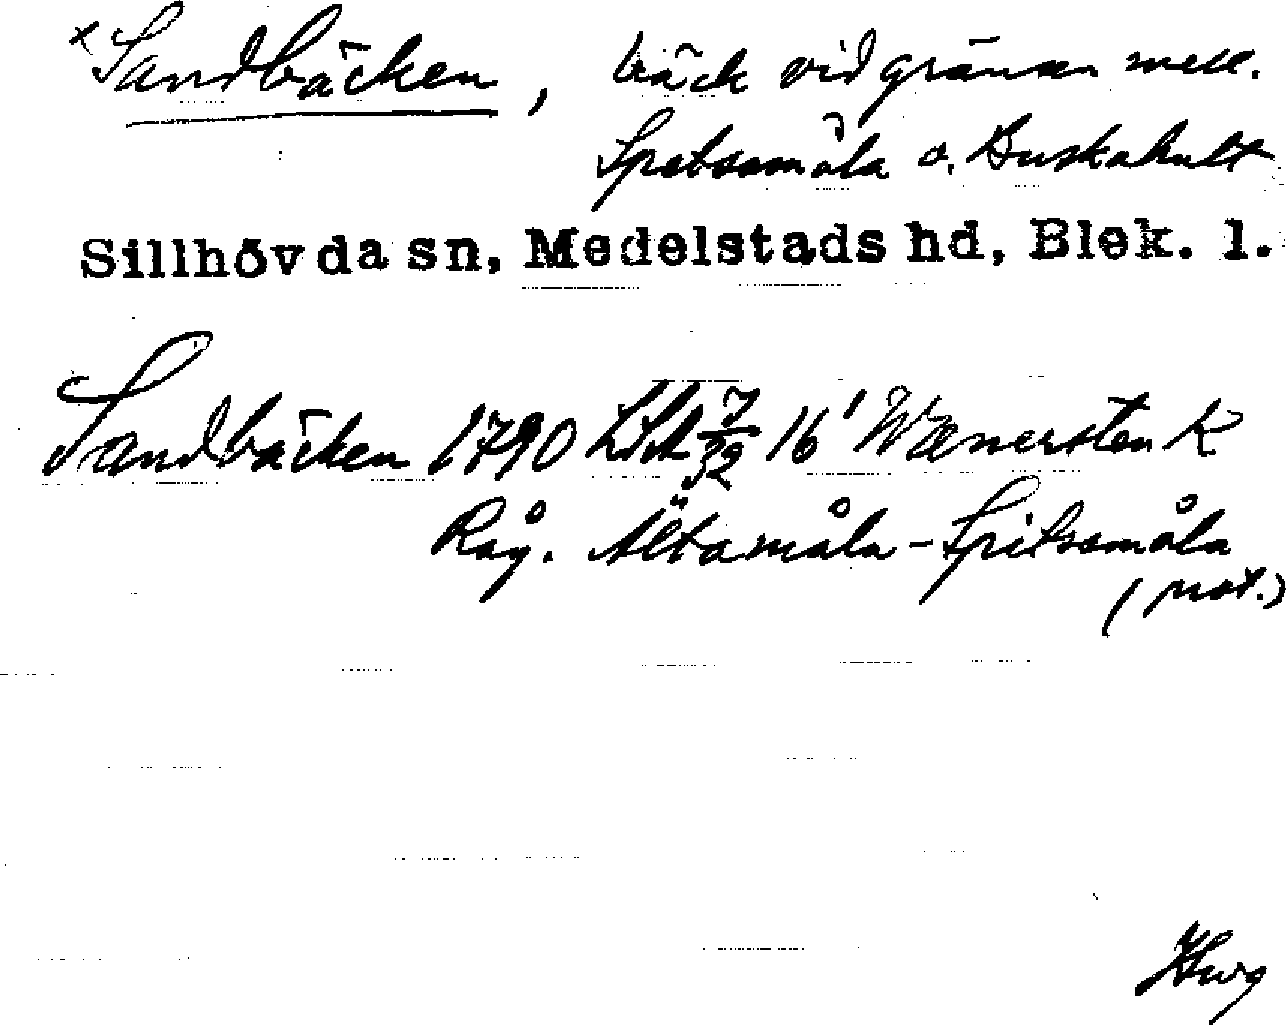 x Sandbäcken, bäck vid gränsen mell.
Spetsamåla o. Buskahult
Sillhövda sn, Medelstads hd, Blek. l.
Sandbäcken 1790 LSA 7/32 16' Wænersten K
Råg. Ältamåla - Spitsamåla
(prot.)